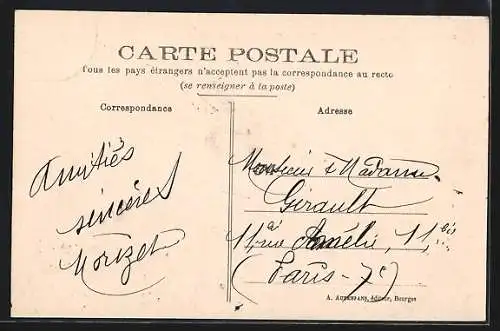 CARTE POSTALE
Tous les pays étrangers n'acceptent pas la correspondance au recto
(se renseigner à la poste)
Correspondance
Adresse
Amitiés
sincères
Morizet
Monsieur & Madame
Girault
11, rue Amélie, 11 bis
(Paris - 7e)
A. AUXENFANS, éditeur, Bourges